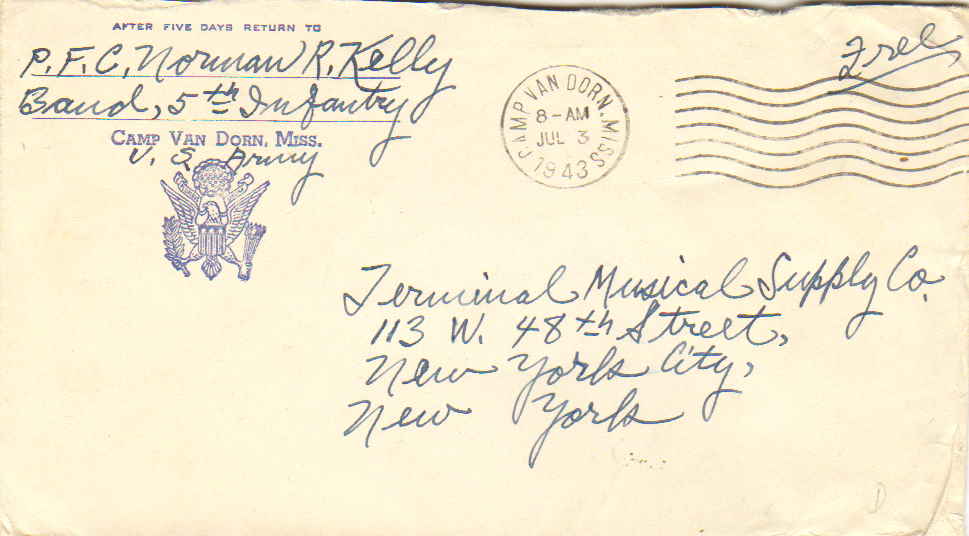 AFTER FIVE DAYS RETURN TO
P.F.C. Norman R. Kelly
Band, 5th Infantry
CAMP VAN DORN, MISS.
U. S. Army
CAMP VAN DORN, MISS.
8-AM
JUL 3
1943
Free
Terminal Musical Supply Co.
113 W. 48th Street,
New York City,
New York
D